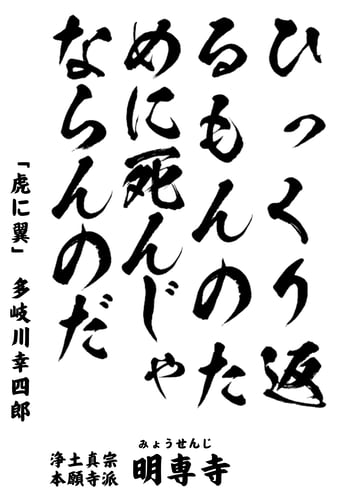 ひっくり返
るもんのた
めに死んじゃ
ならんのだ
「虎に翼」 多岐川幸四郎
浄土真宗
本願寺派
みょうせんじ
明専寺